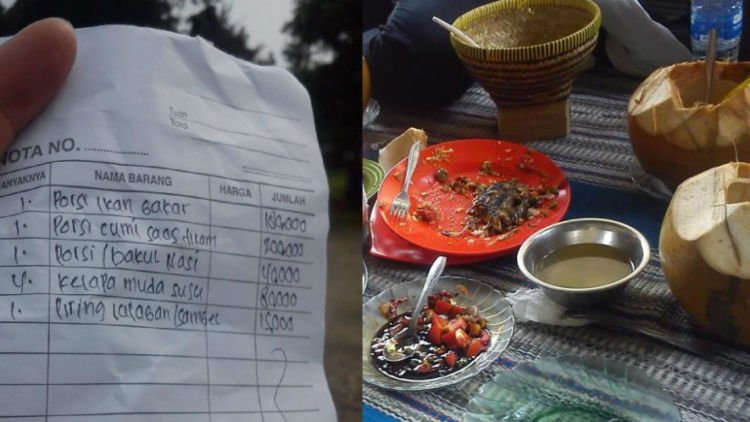 Tuan
Toko
NOTA NO.
ANYAKNYA NAMA BARANG HARGA JUMLAH
1. Porsi ikan bakar
1. Porsi cumi saos hitam 200,000
1. Porsi/bakul Nasi 40,000
4. Kelapa muda susu 80,000
1. Piring lalaban/sambel 15,000